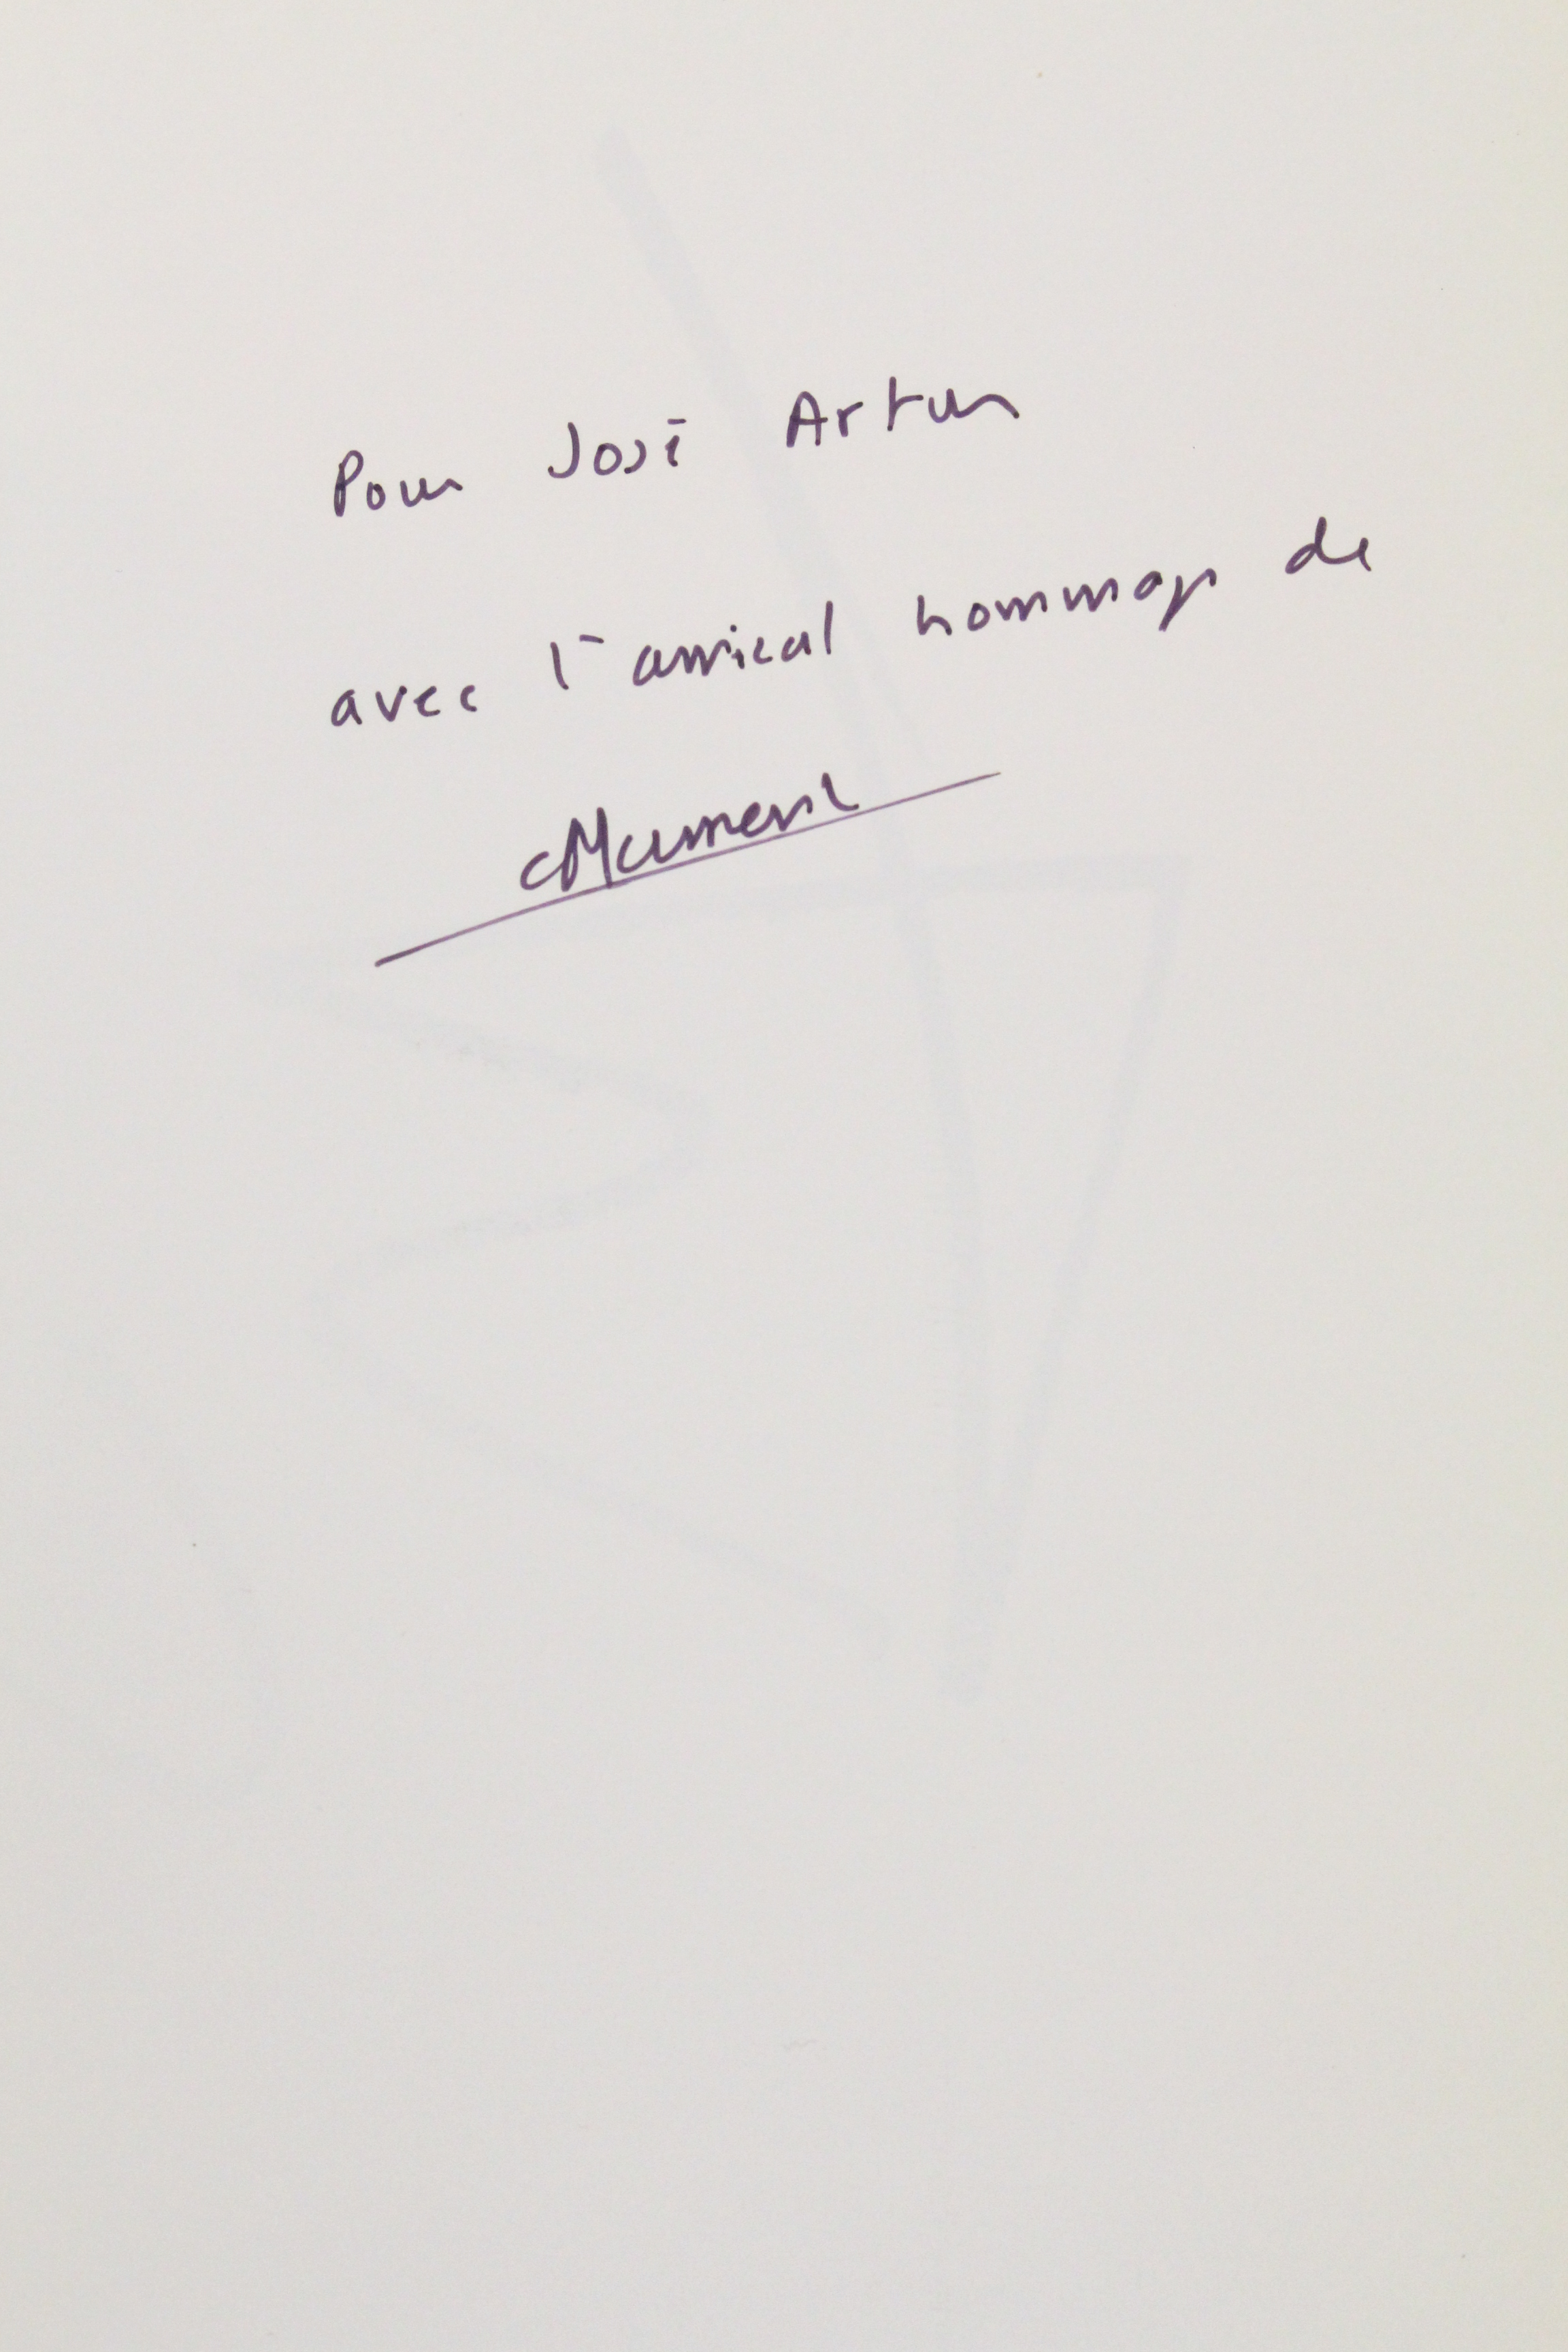 Pour José Artur
avec l'amical hommage de